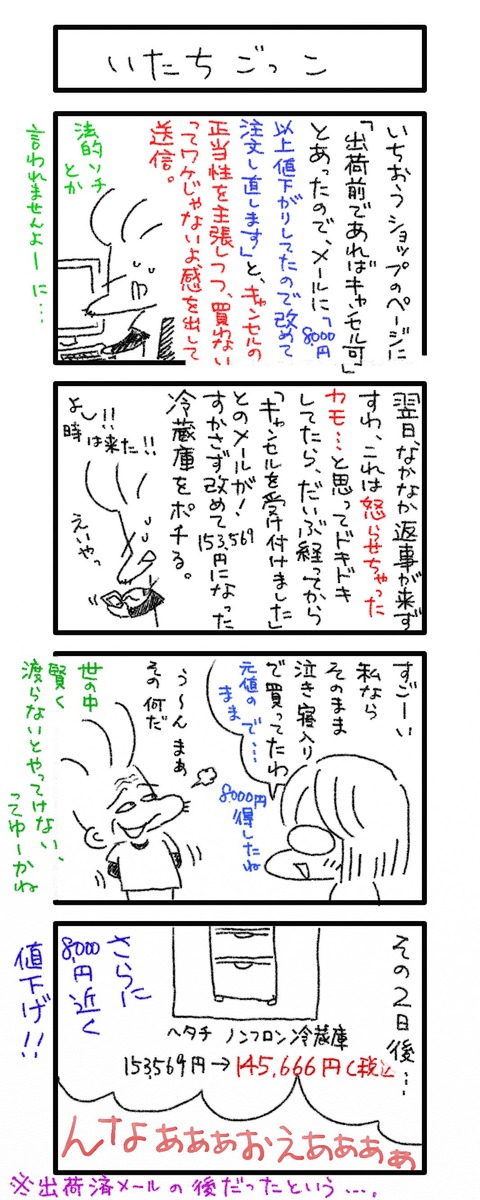 いたちごっこ
いちおうショップのページに
「出荷前であればキャンセル可」
とあったので、メールに「8000円
以上値下がりしてたので改めて
注文し直します」と、キャンセルの
正当性を主張しつつ、買わない
ってワケじゃないよ、感を出して
送信。
法的ソチ
とか
言われませんよーに…
翌日、なかなか返事が来ず
すわ、これは怒らせちゃった
カモ…と思ってドキドキ
してたら、だいぶ経ってから
「キャンセルを受け付けました」
とのメールが！
すかさず改めて153,569円になった
冷蔵庫をポチる。
よし!!
時は来た!!
えいやっ
すごーい
私なら
そのまま
泣き寝入り
で買ってたわ
元値ので…
まま
8000円
得したね
う〜んまぁ
その何だ
世の中
賢く
渡らないとやってけない、
ってゆーかね
その2日後…
ヘタチ ノンフロン冷蔵庫
153,569円→145,666円(税込
さらに
8,000円近く
値下げ!!
んなぁぁぁおえあああぁ
※出荷済メールの後だったという…。